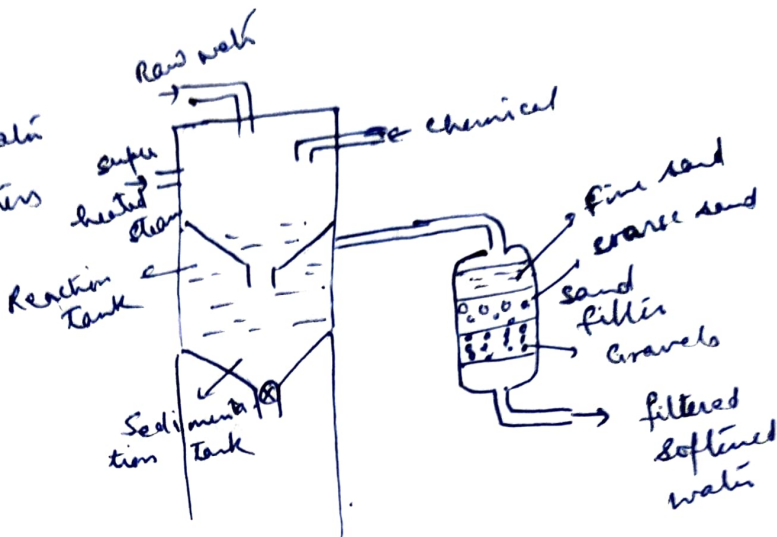 Raw water
chemical
super
heated
steam
Reaction
Tank
Sedimenta
tion Tank
fine sand
coarse sand
sand
filter
Gravels
filtered
softened
water